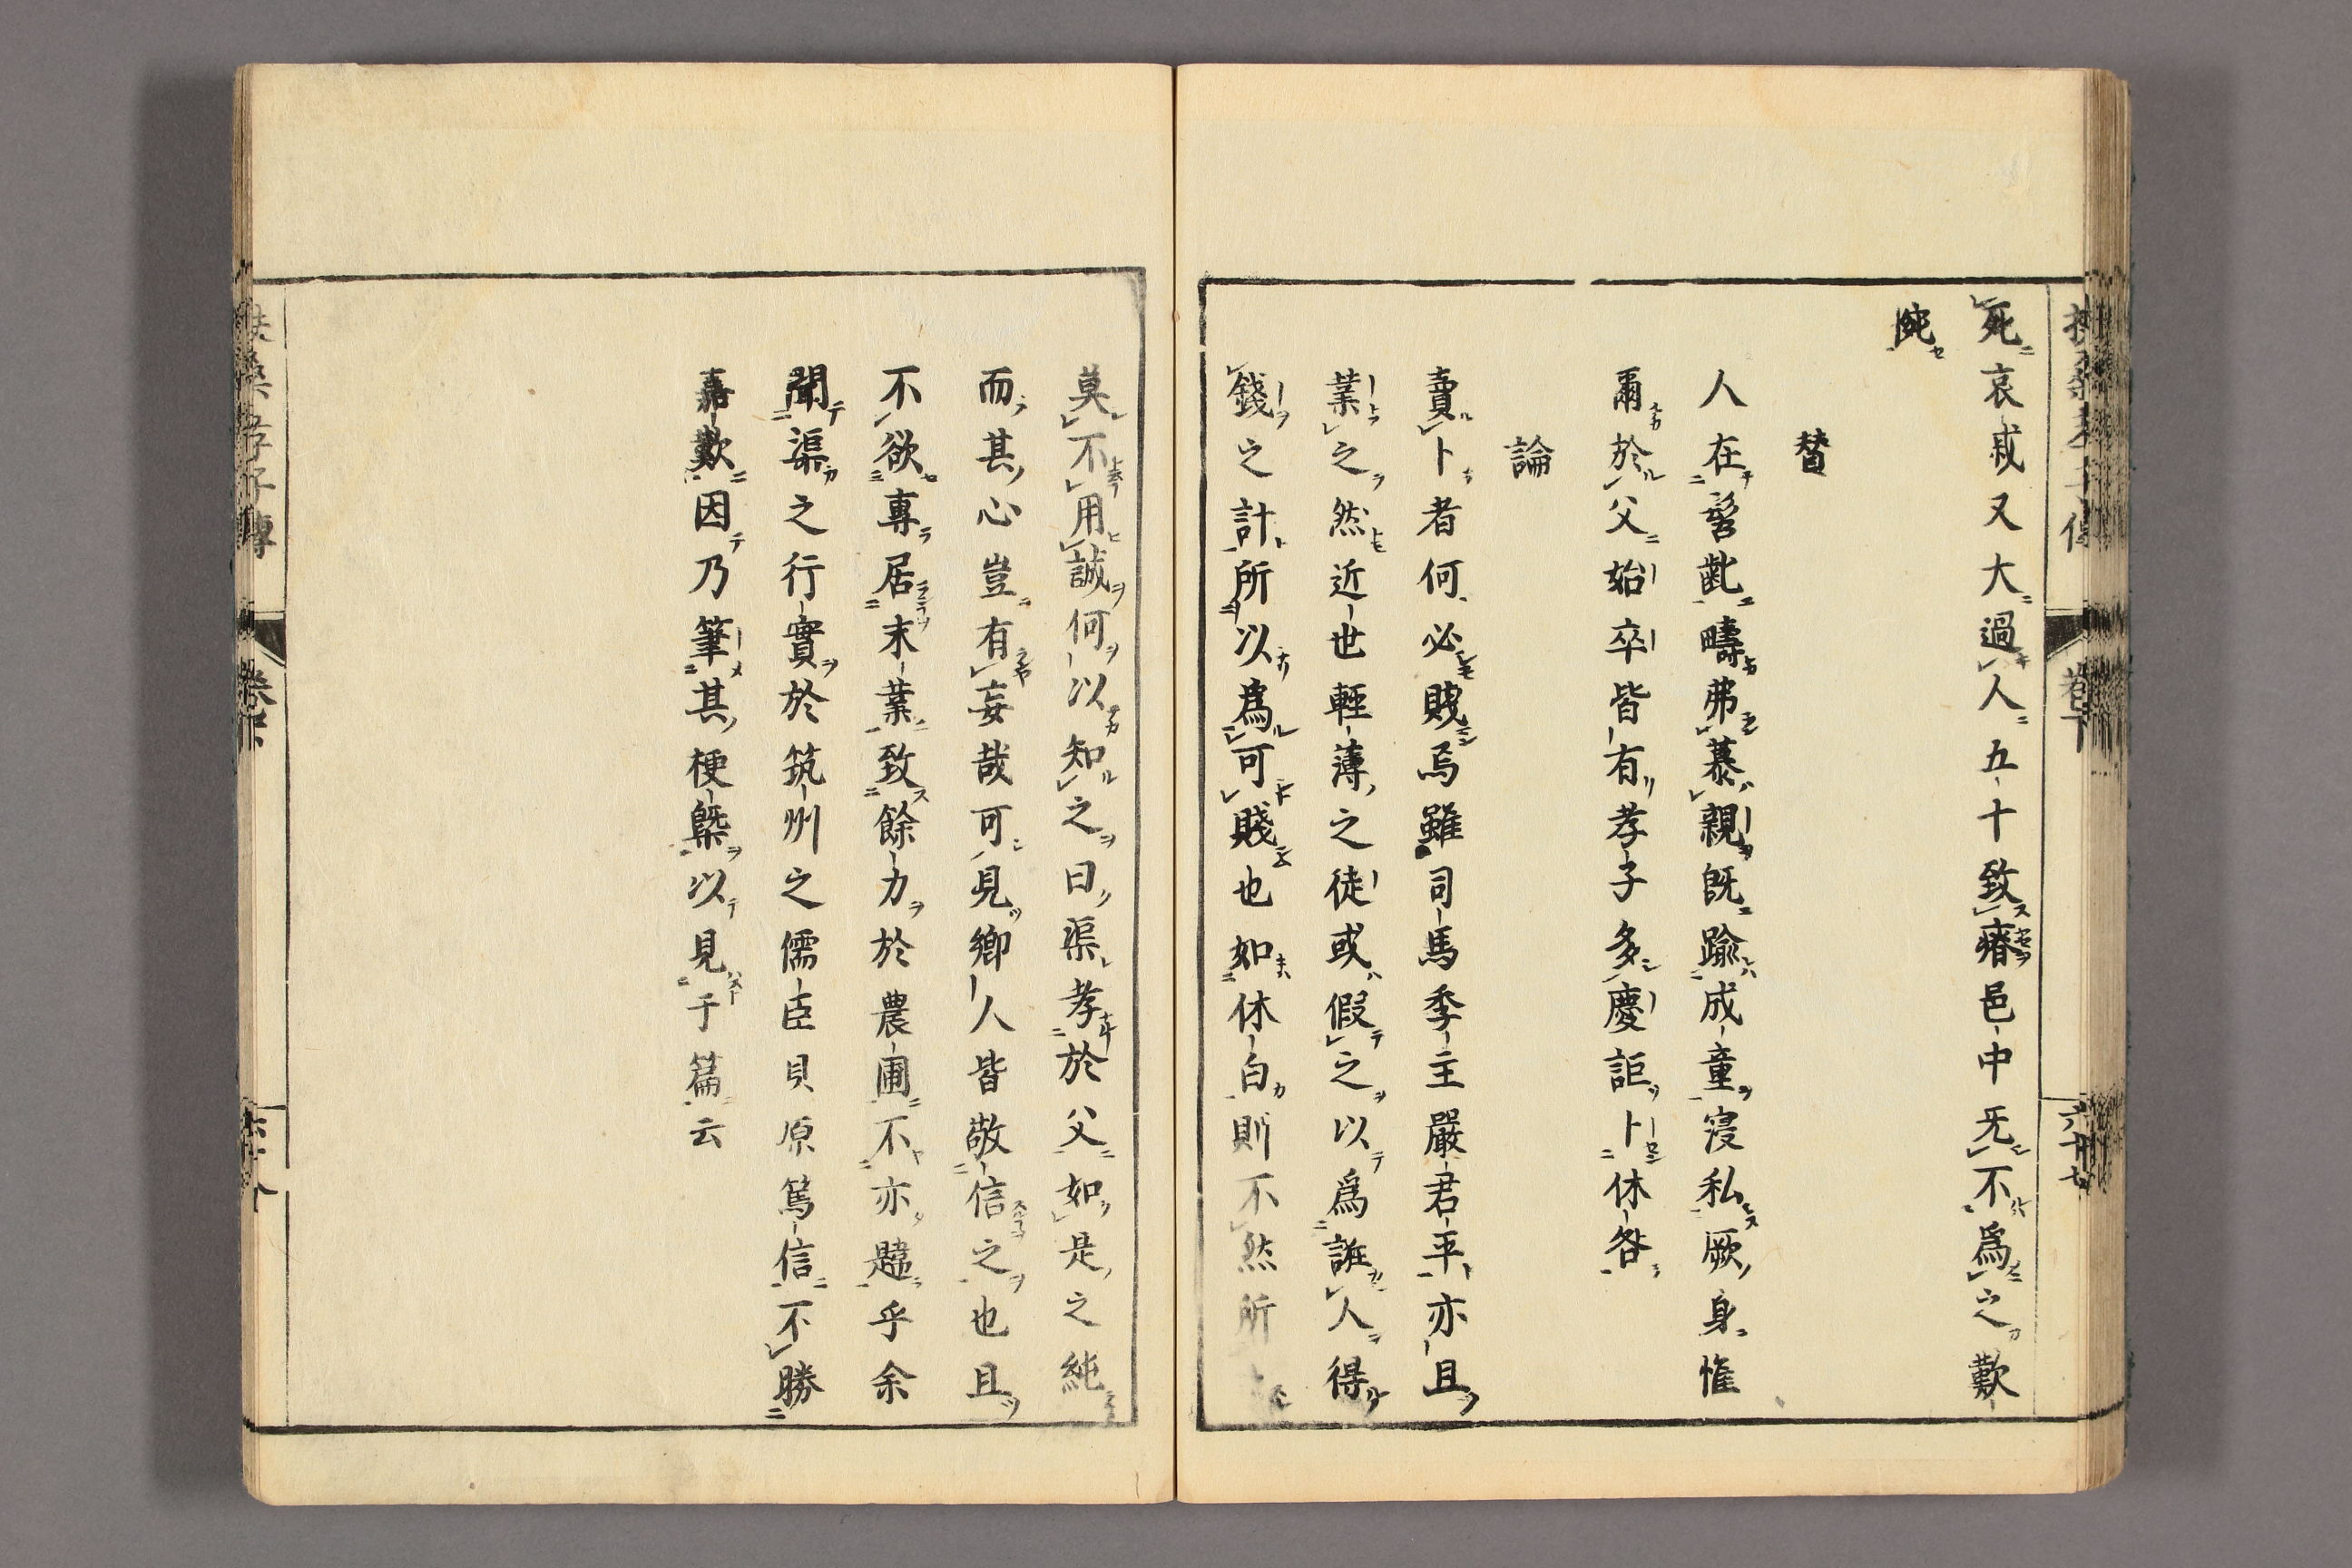 死哀戚又大過人五十致瘠邑中无不為之歎
飩
替
人在髫齔疇弗慕親既踰成童寝私厥身惟
爾於父始卒皆有孝子多慶詎卜休咎
論
賣卜者何必賤焉雖司馬季主嚴君平亦且
業之然近世輕薄之徒或假之以爲誑人得
錢之計所以爲可賤也如休白則不然所
莫不用誠何以知之曰渠孝於父如是之純
而其心豈有妄哉可見鄉人皆敬信之也且
不欲專居末業致餘力於農圃不亦韙乎余
聞渠之行實於筑州之儒臣貝原篤信不勝
嘉歎因乃筆其梗槩以見于篇云
扶桑孝子傳 卷下